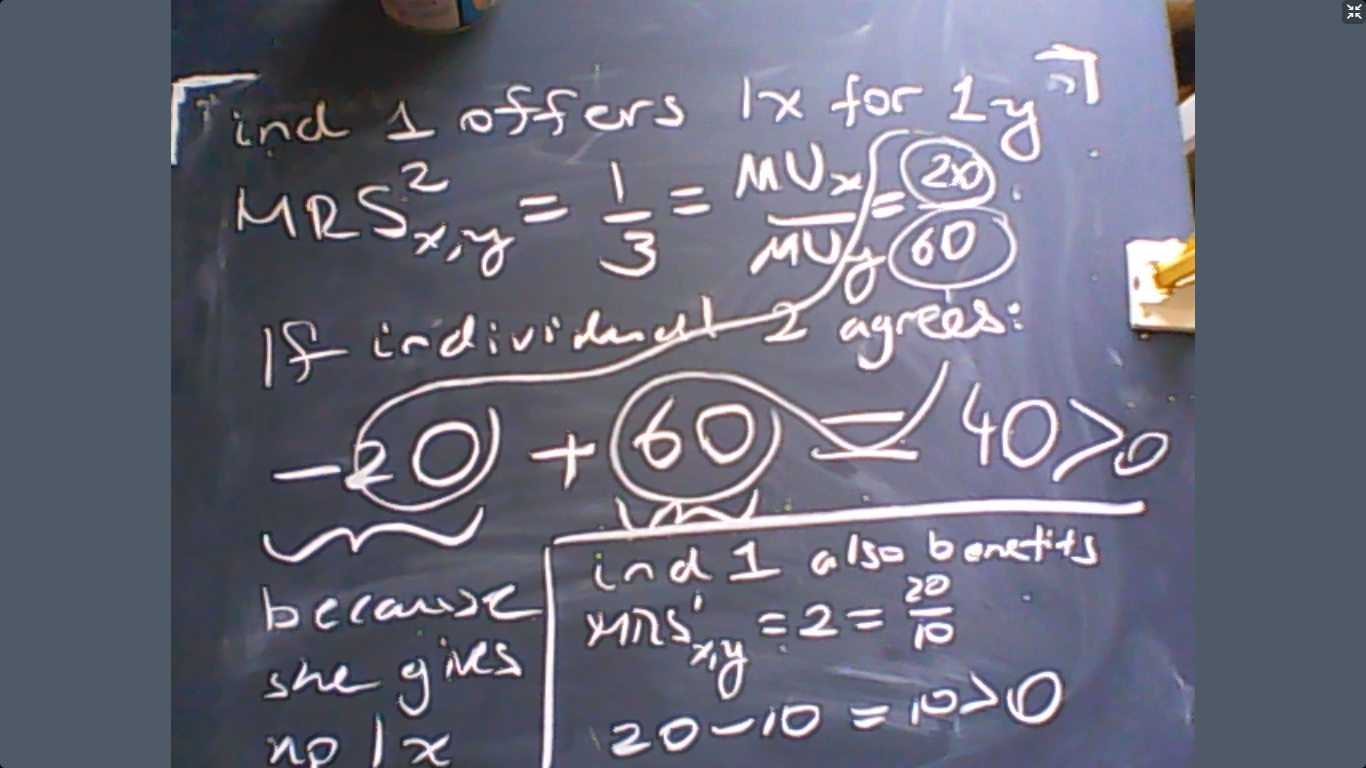 ind 1 offers 1x for 1y
MRS²x,y = 1/3 = MUx/MUy = 20/60
If individual 2 agrees:
-20 + 60 = 40 > 0
because
she gives
up 1x
ind 1 also benefits
MRS¹x,y = 2 = 20/10
20 - 10 = 10 > 0